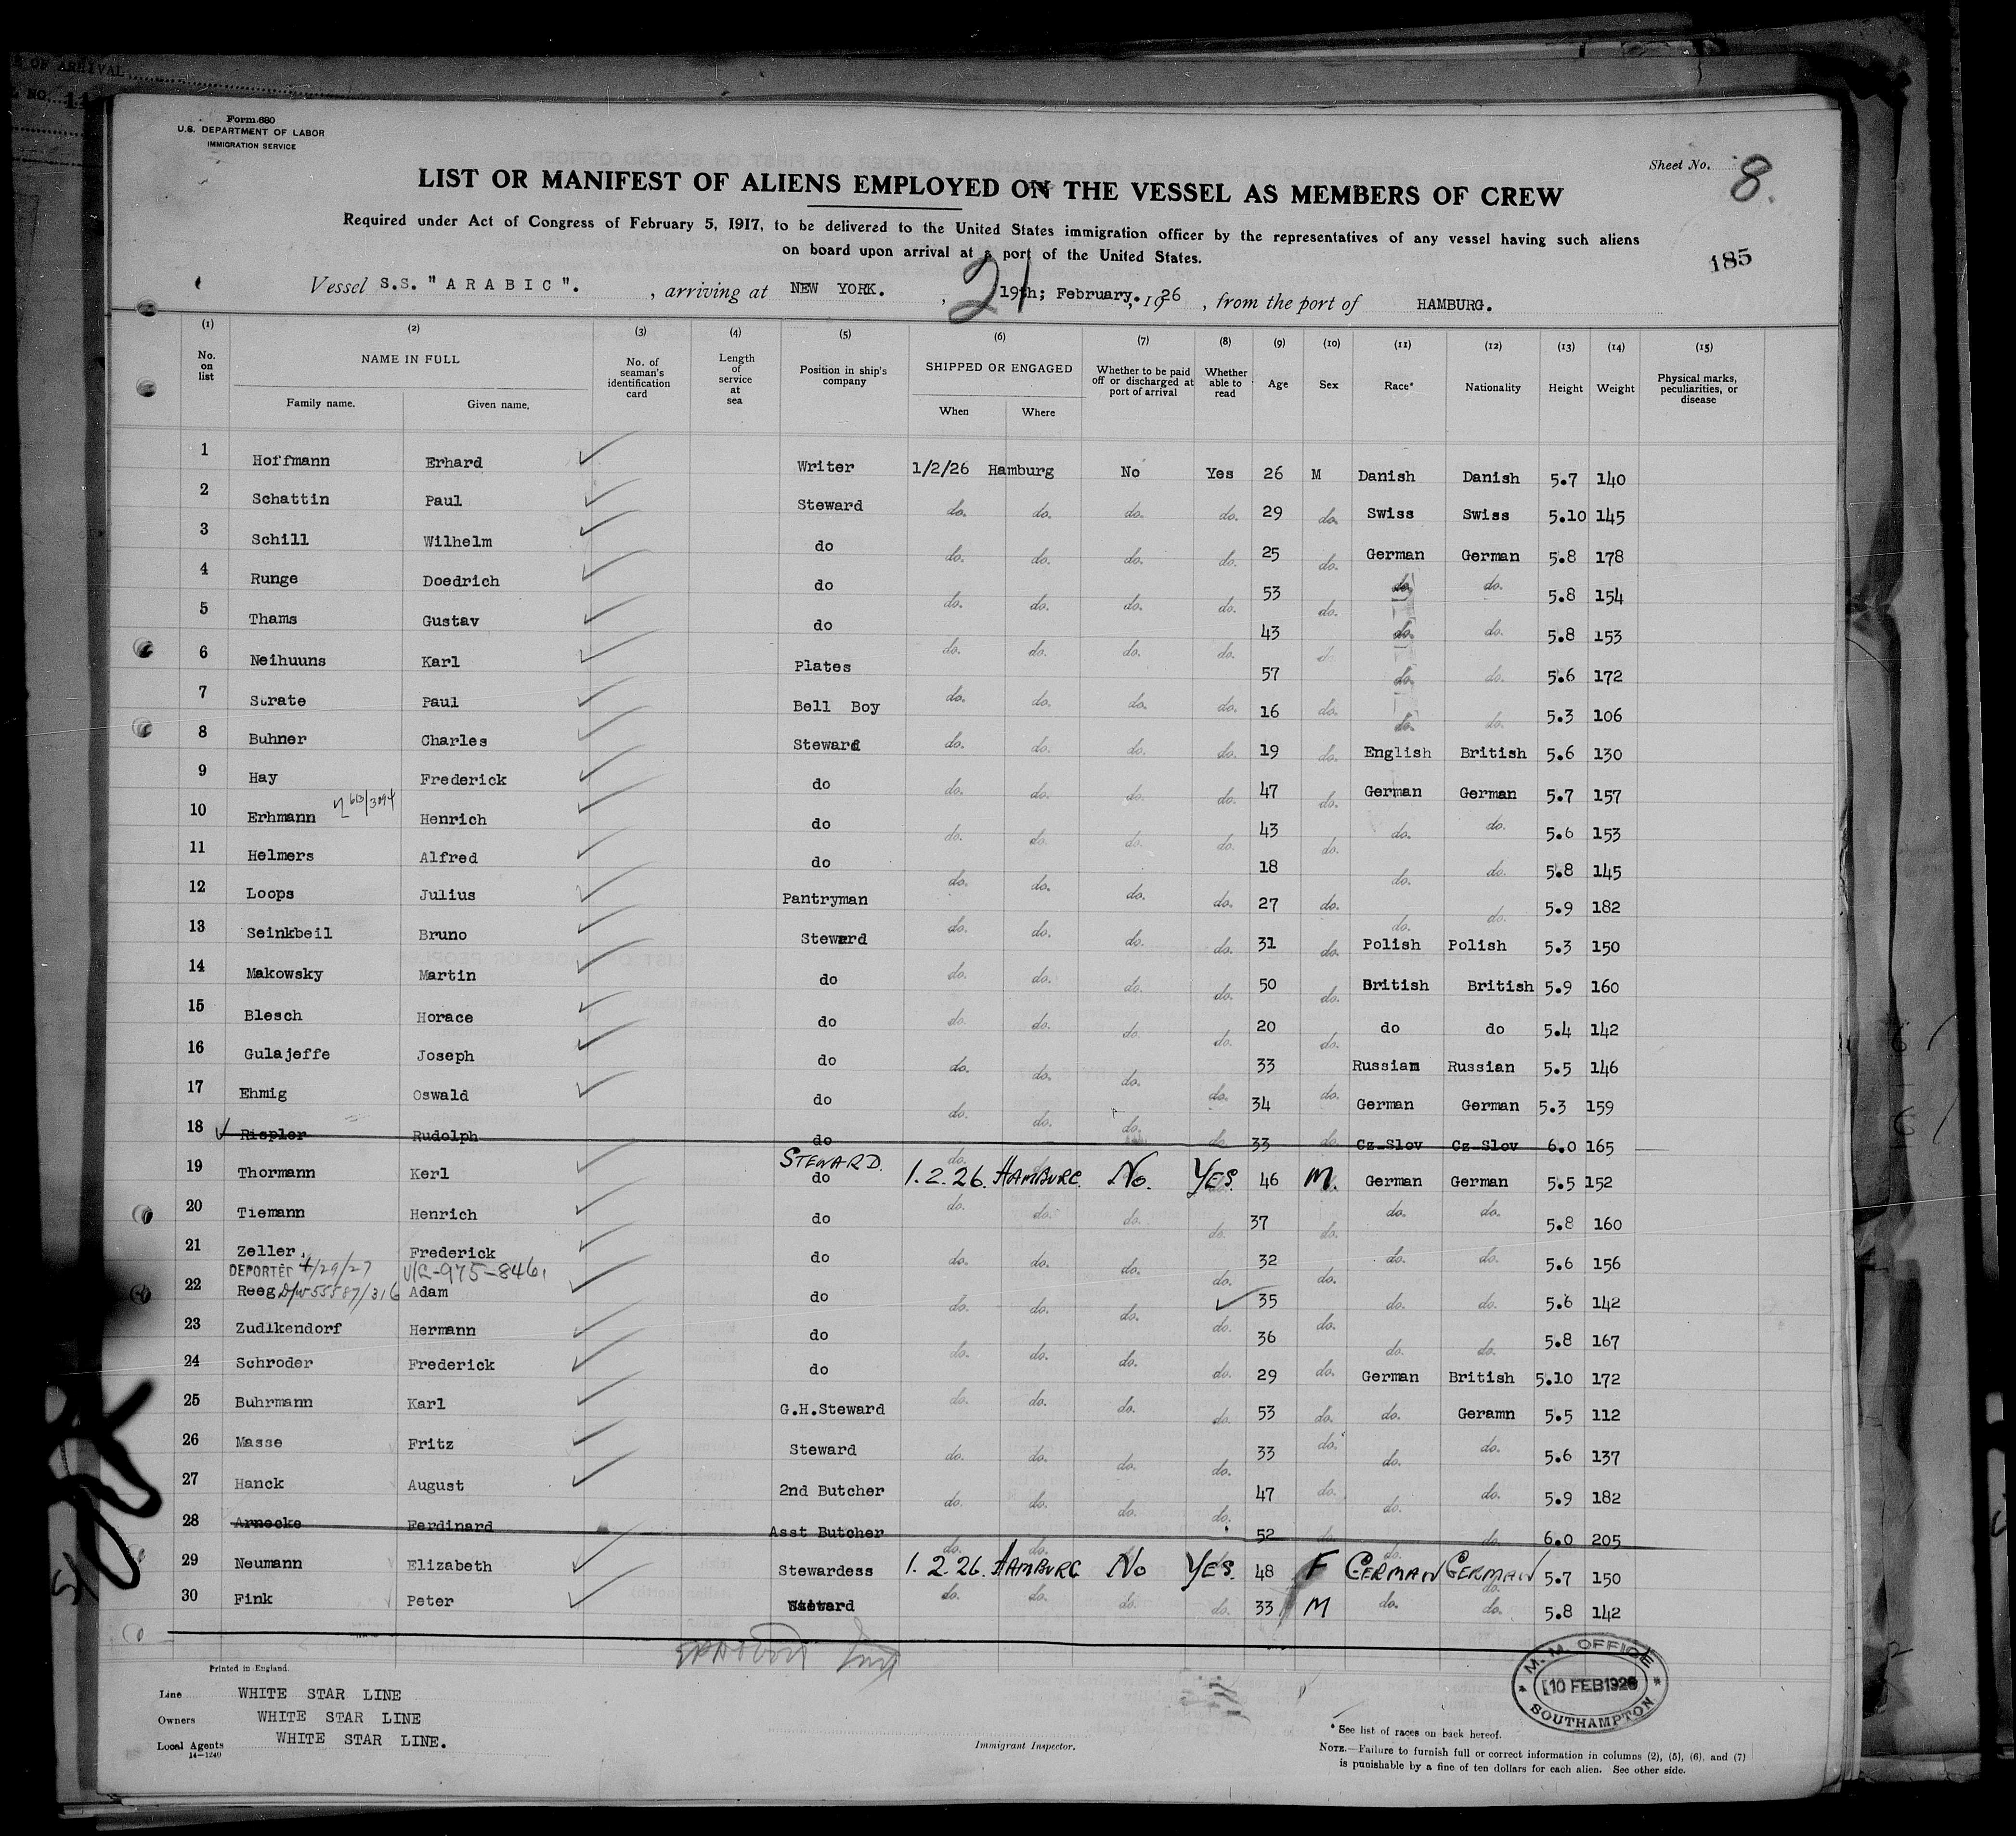 E OF ARRIVAL
NO. 11
Form 680
U.S. DEPARTMENT OF LABOR
IMMIGRATION SERVICE
Sheet No. 8.
LIST OR MANIFEST OF ALIENS EMPLOYED ON THE VESSEL AS MEMBERS OF CREW
Required under Act of Congress of February 5, 1917, to be delivered to the United States immigration officer by the representatives of any vessel having such aliens
on board upon arrival at a port of the United States.
185
Vessel S.S. "ARABIC". , arriving at NEW YORK. , 21 19th; February. , 1926 , from the port of HAMBURG.
(1) (2) (3) (4) (5) (6) (7) (8) (9) (10) (11) (12) (13) (14) (15)
No. on list NAME IN FULL No. of seaman's identification card Length of service at sea Position in ship's company SHIPPED OR ENGAGED Whether to be paid off or discharged at port of arrival Whether able to read Age Sex Race* Nationality Height Weight Physical marks, peculiarities, or disease
Family name. Given name. When Where
1 Hoffmann Erhard Writer 1/2/26 Hamburg No Yes 26 M Danish Danish 5.7 140
2 Schattin Paul Steward do. do. do. do. 29 do. Swiss Swiss 5.10 145
3 Schill Wilhelm do do. do. do. do. 25 do. German German 5.8 178
4 Runge Doedrich do do. do. do. do. 53 do. do. do. 5.8 154
5 Thams Gustav do do. do. do. do. 43 do. do. do. 5.8 153
6 Neihuuns Karl Plates do. do. do. do. 57 do. do. do. 5.6 172
7 Strate Paul Bell Boy do. do. do. do. 16 do. do. do. 5.3 106
8 Buhner Charles Steward do. do. do. do. 19 do. English British 5.6 130
9 Hay Frederick do do. do. do. do. 47 do. German German 5.7 157
10 Erhmann Henrich do do. do. do. do. 43 do. do. do. 5.6 153
11 Helmers Alfred do do. do. do. do. 18 do. do. 5.8 145
12 Loops Julius Pantryman do. do. do. do. 27 do. do. do. 5.9 182
13 Seinkbeil Bruno Steward do. do. do. do. 31 do. Polish Polish 5.3 150
14 Makowsky Martin do do. do. do. do. 50 do. British British 5.9 160
15 Blesch Horace do do. do. do. do. 20 do. do do 5.4 142
16 Gulajeffe Joseph do do. do. do. 33 Russian Russian 5.5 146
17 Ehmig Oswald do do. do. do. do. 34 do. German German 5.3 159
18 Rispler Rudolph do do. do. 33 do. Cz-Slov Cz-Slov 6.0 165
19 Thormann Kerl STEWARD. do 1.2.26. HAMBURG. No. YES. 46 M. German German 5.5 152
20 Tiemann Henrich do do. do. do. do. 37 do. do. do. 5.8 160
21 Zeller, Frederick do do. do. do. do. 32 do. do. do. 5.6 156
DEPORTED 4/29/27 V/L-975-846,
22 Reeg D/W 55587/316 Adam do do. do. do. do. 35 do. do. do. 5.6 142
23 Zudlkendorf Hermann do do. do. do. 36 do. do. do. 5.8 167
24 Schroder Frederick do do. do. do. do. 29 do. German British 5.10 172
25 Buhrmann Karl G.H.Steward do. do. do. do. 53 do. do. Geramn 5.5 112
26 Masse Fritz Steward do. do. do. do. 33 do. do. do. 5.6 137
27 Hanck August 2nd Butcher do. do. do. do. 47 do. do. do. 5.9 182
28 Arnecke Ferdinard Asst Butcher do. do. 52 do. do. do. 6.0 205
29 Neumann Elizabeth Stewardess 1.2.26. HAMBURG No YES. 48 F GERMAN GERMAN 5.7 150
30 Fink Peter Steward do. do. do. do. 33 M do. do. 5.8 142
Printed in England.
Line WHITE STAR LINE
Owners WHITE STAR LINE
Local Agents WHITE STAR LINE.
14-1240
Immigrant Inspector.
M. M. OFFICE
10 FEB 1926
SOUTHAMPTON
* See list of races on back hereof.
NOTE.—Failure to furnish full or correct information in columns (2), (5), (6), and (7)
is punishable by a fine of ten dollars for each alien. See other side.